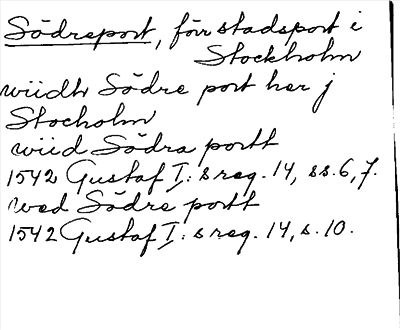 Södreport, förr stadsport i
Stockholm
wiidh Södre port her j
Stocholm
wiid Södra portt
1542 Gustaf I:s reg. 14, ss. 6, 7.
wed Södre portt
1542 Gustaf I:s reg. 14, s. 10.